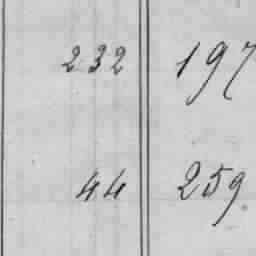 232 197
44 259